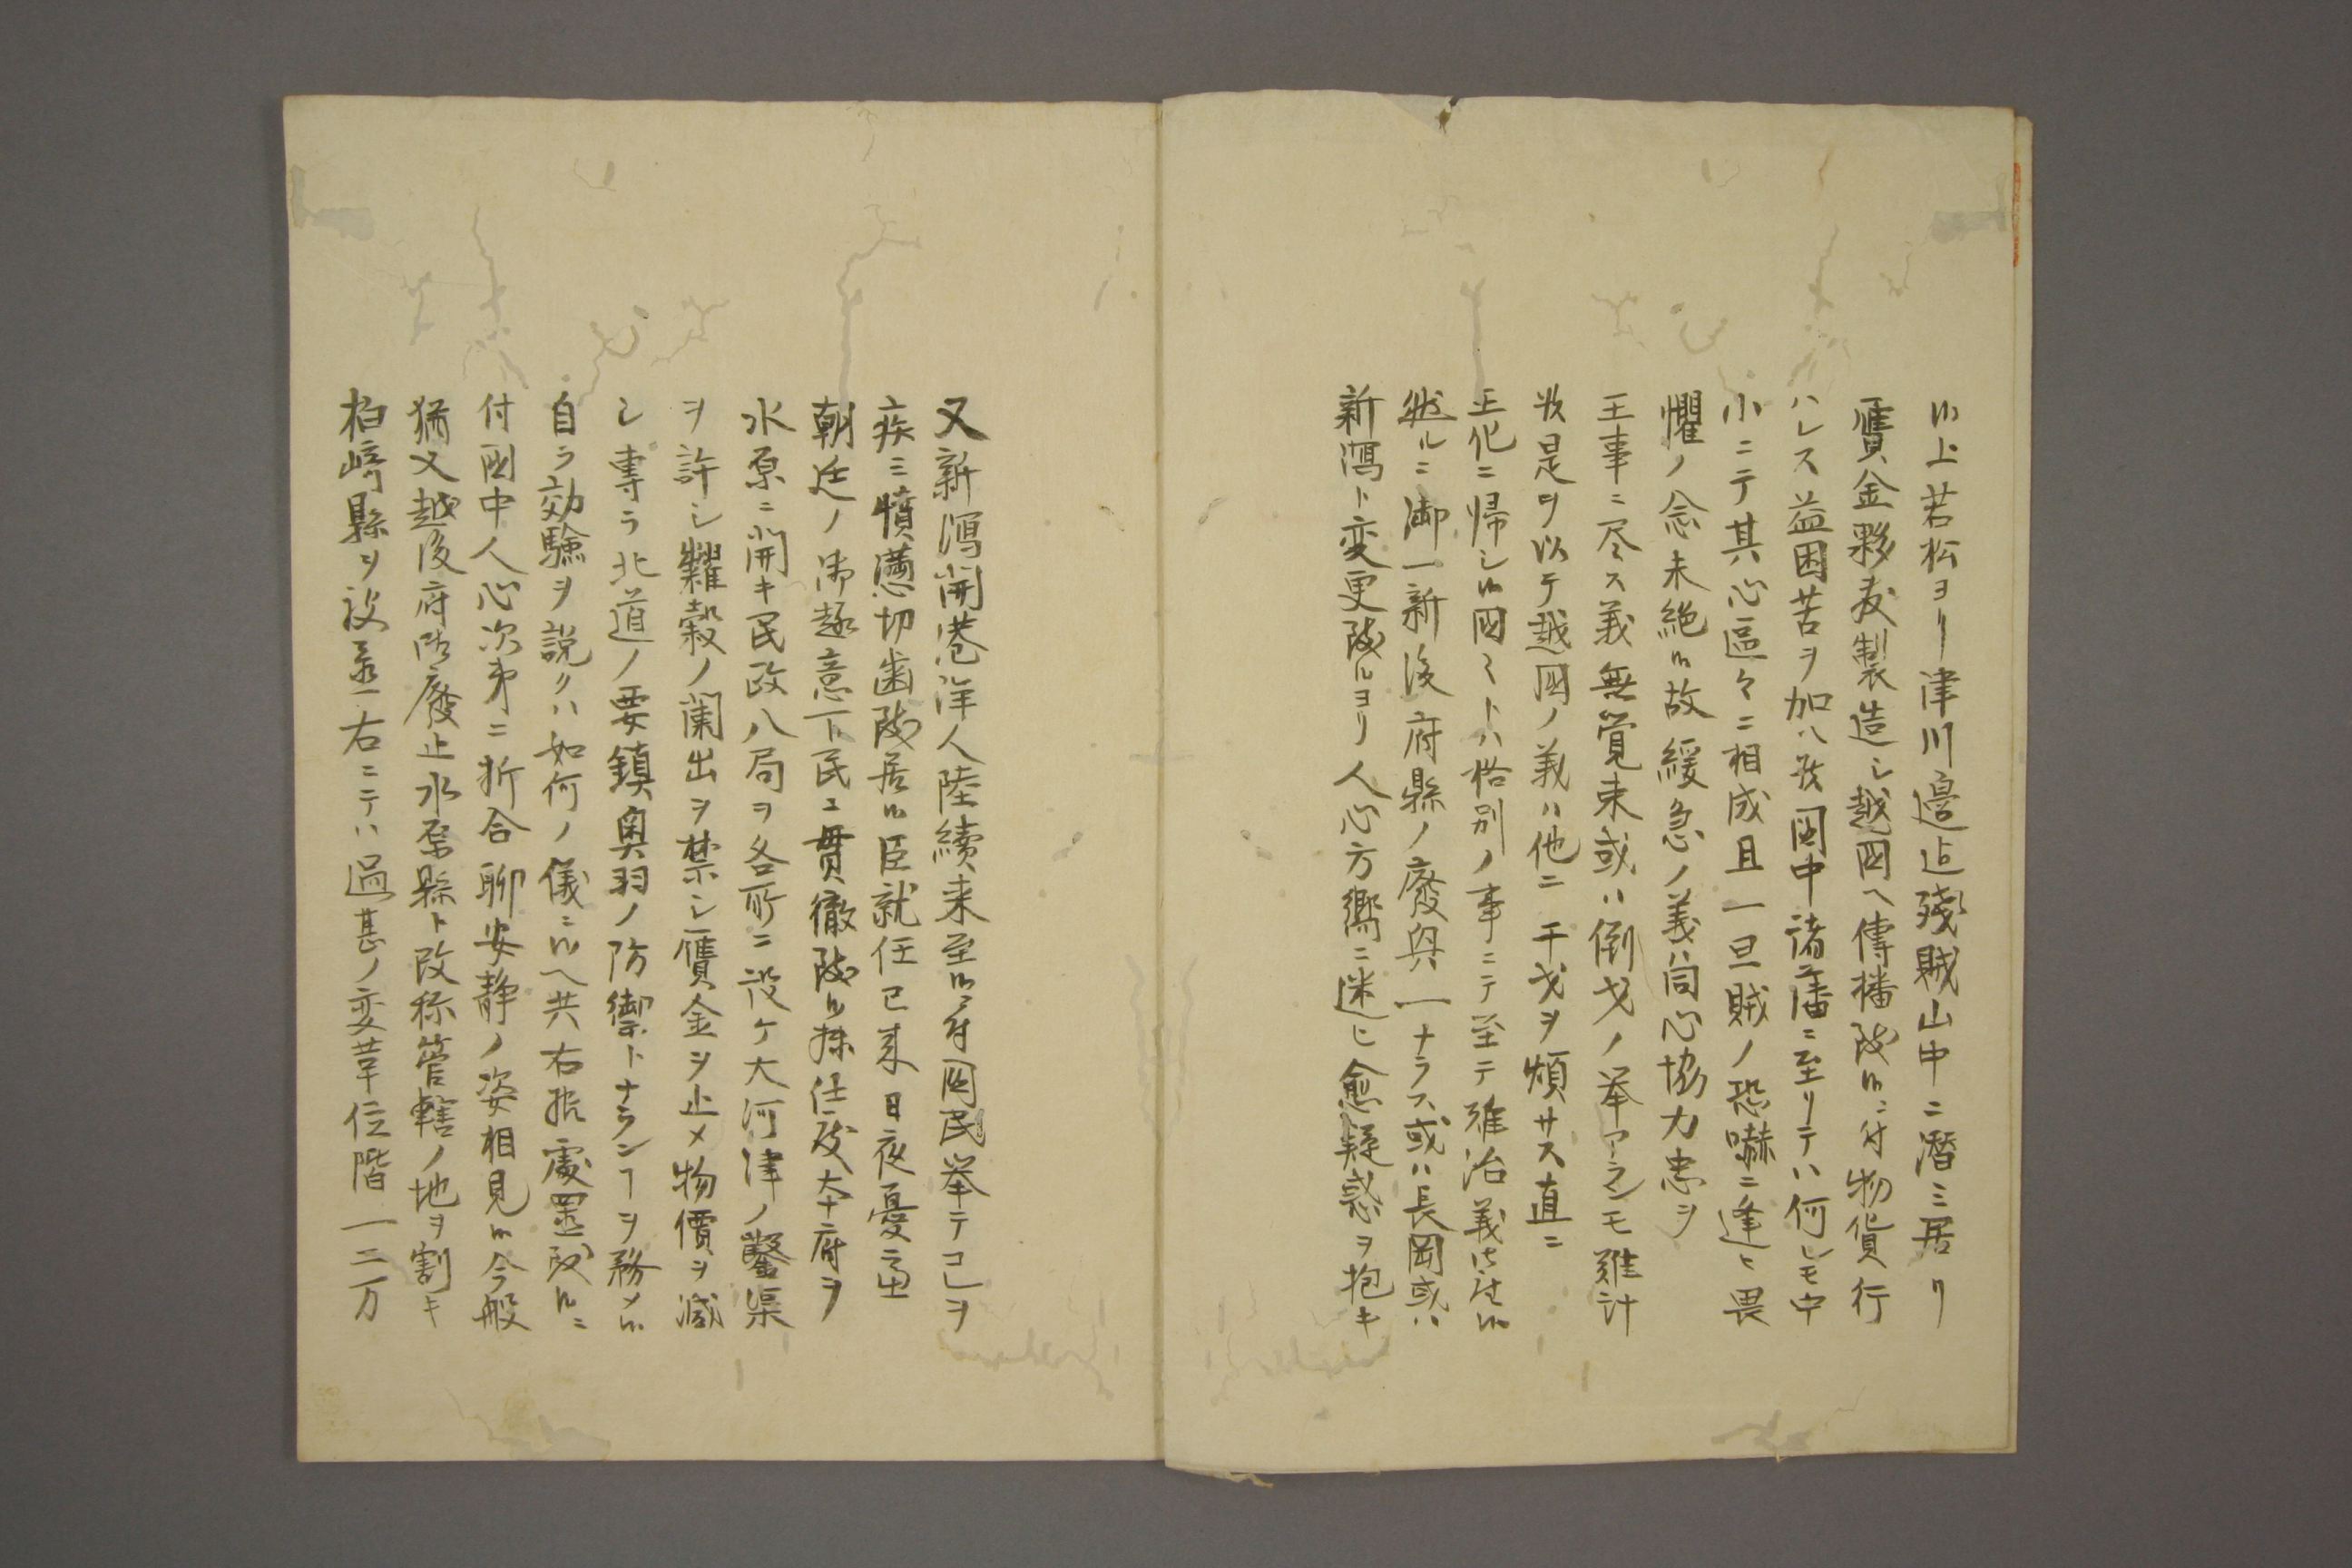 候上若松ヨリ津川邉迄残賊山中ニ潜ミ居リ
贋金夥敷製造シ越国ヘ傳播致候ニ付物貨行
ハレス益困苦ヲ加ヘ于国中諸藩ニ至リテハ何レモ中
小ニテ其心區々ニ相成且一旦賊ノ恐嚇ニ逢ヒ畏
懼ノ念未絶候故緩急ノ義ハ同心協力忠ヲ
王事ニ尽ス義無覚束或ハ倒戈ノ挙アランモ難計
故是ヲ以テ越国ノ義ハ他ニ干戈ヲ煩サス直ニ
王化ニ帰シ候国々トハ格別ノ事ニテ至テ難治義ニ御座候
然ルニ御一新後府縣ノ廢與一ナラス或ハ長岡或ハ
新潟ト変更致候ヨリ人心方嚮ニ迷ヒ愈疑惑ヲ抱キ
又新潟開港洋人陸續来至候ニ付国民挙テコレヲ
疾ミ憤懣切歯致居候臣就任已来日夜憂
朝廷ノ御趣意下民エ貫徹致候様仕度本府ヲ
水原ニ開キ民政八局ヲ各所ニ設ケ大河津ノ鑿渠
ヲ許シ糶穀ノ闌出ヲ禁シ贋金ヲ止メ物價ヲ減
シ専ラ北道ノ要鎮奥羽ノ防禦トナランヿヲ務メ候
自ラ効驗ヲ説クハ如何ノ儀ニ候ヘ共右振處置致候ニ
付国中人心次第ニ折合聊安静ノ姿相見候今般
猶又越後府御廢止水原縣ト改称管轄ノ地ヲ割キ
柏﨑縣ヲ設置右ニテハ過甚ノ変革位階一二万